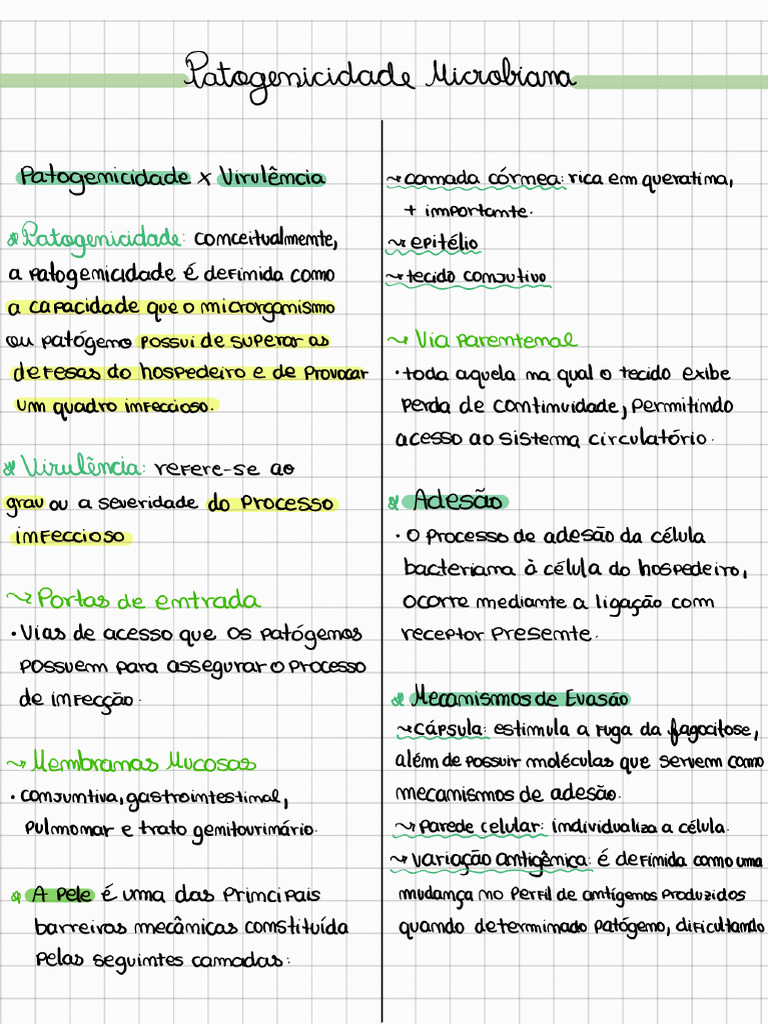 Patogenicidade Microbiana
Patogenicidade x Virulência
Patogenicidade: conceitualmente,
a patogenicidade é definida como
a capacidade que o microrganismo
ou patógeno possui de superar as
defesas do hospedeiro e de provocar
um quadro infeccioso.
Virulência: refere-se ao
grau ou a severidade do processo
infeccioso
Portas de entrada
• Vias de acesso que os patógenos
possuem para assegurar o processo
de infecção.
Membranas Mucosas
• conjuntiva, gastrointestinal,
pulmonar e trato genitourinário.
A pele é uma das principais
barreiras mecânicas constituída
pelas seguintes camadas:
camada córnea: rica em queratina,
+ importante.
epitélio
tecido conjutivo
Via parentenal
• toda aquela na qual o tecido exibe
perda de continuidade, permitindo
acesso ao sistema circulatório.
Adesão
• O processo de adesão da célula
bacteriana à célula do hospedeiro,
ocorre mediante a ligação com
receptor presente.
Mecanismos de Evasão
cápsula: estimula a fuga da fagocitose,
além de possuir moléculas que servem como
mecanismos de adesão.
parede celular: individualiza a célula.
variação antigênica: é definida como uma
mudança no perfil de antígenos produzidos
quando determinado patógeno, dificultando